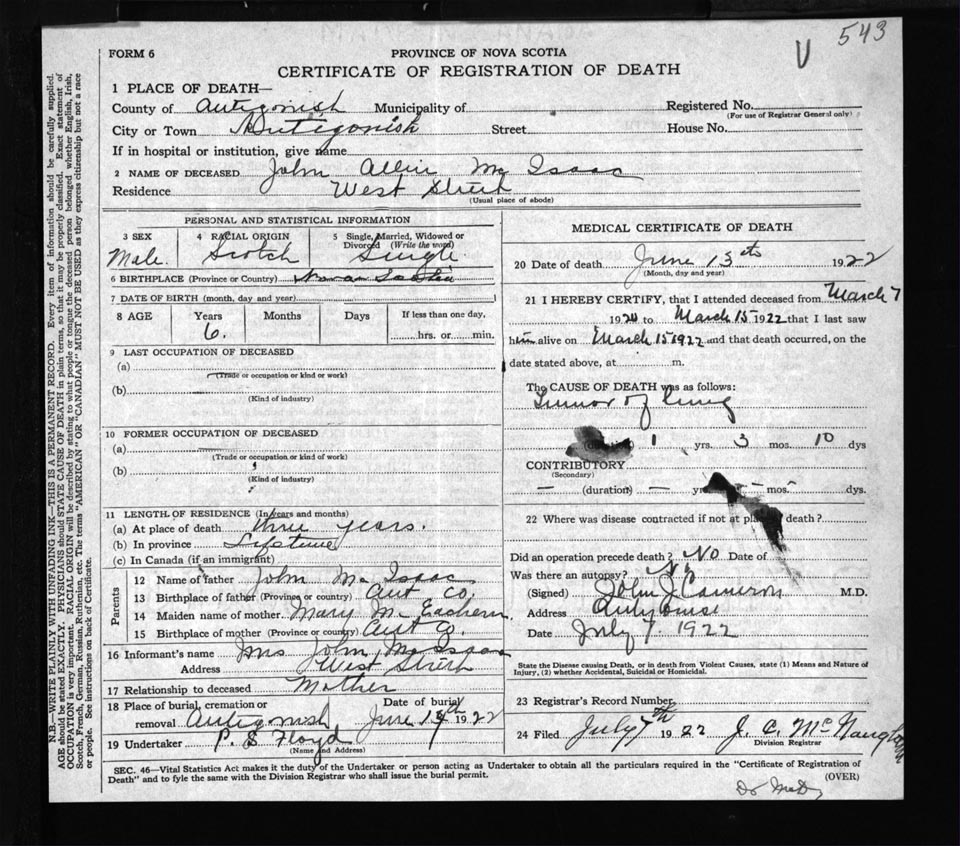 543
V
FORM 6
PROVINCE OF NOVA SCOTIA
CERTIFICATE OF REGISTRATION OF DEATH
1 PLACE OF DEATH—
County of Antigonish Municipality of Registered No.
(For use of Registrar General only)
City or Town Antigonish Street House No.
If in hospital or institution, give name
2 NAME OF DECEASED John Allin Mc Isaac
Residence West Street
(Usual place of abode)
PERSONAL AND STATISTICAL INFORMATION
3 SEX 4 RACIAL ORIGIN 5 Single, Married, Widowed or Divorced (Write the word)
Male. Scotch Single
6 BIRTHPLACE (Province or Country) Nova Scotia
7 DATE OF BIRTH (month, day and year)
8 AGE Years Months Days If less than one day,
6. hrs. or min.
9 LAST OCCUPATION OF DECEASED
(a)
(Trade or occupation or kind or work)
(b)
(Kind of industry)
10 FORMER OCCUPATION OF DECEASED
(a)
(Trade or occupation or kind of work)
(b)
(Kind of industry)
11 LENGTH OF RESIDENCE (In years and months)
(a) At place of death three years.
(b) In province Lifetime
(c) In Canada (if an immigrant)
Parents
12 Name of father John Mc Isaac
13 Birthplace of father (Province or country) Ant Co.
14 Maiden name of mother Mary Mc Eachern
15 Birthplace of mother (Province or country) Ant Co.
16 Informant's name Mrs John McIsaac
Address West Street
17 Relationship to deceased Mother
18 Place of burial, cremation or Date of burial
removal Antigonish June 1922
19 Undertaker P. S Floyd
(Name and Address)
MEDICAL CERTIFICATE OF DEATH
20 Date of death June 13th 1922
(Month, day and year)
21 I HEREBY CERTIFY, that I attended deceased from March 7
19 to March 15 1922 that I last saw
him alive on March 15 1922 and that death occurred, on the
date stated above, at m.
The CAUSE OF DEATH was as follows:
Tumor of lung
1 yrs. 3 mos. 10 dys
CONTRIBUTORY
(Secondary)
— (duration) — yrs — mos. — dys.
22 Where was disease contracted if not at place death?
Did an operation precede death? No Date of
Was there an autopsy? No
(Signed) John J Cameron M.D.
Address Antigonish
Date July 7. 1922
State the Disease causing Death, or in death from Violent Causes, state (1) Means and Nature of
Injury, (2) whether Accidental, Suicidal or Homicidal.
23 Registrar's Record Number
24 Filed July 7th 1922 J. C. McNaughton
Division Registrar
SEC. 46—Vital Statistics Act makes it the duty of the Undertaker or person acting as Undertaker to obtain all the particulars required in the "Certificate of Registration of
Death" and to fyle the same with the Division Registrar who shall issue the burial permit. (OVER)
N.B.—WRITE PLAINLY WITH UNFADING INK—THIS IS A PERMANENT RECORD. Every item of information should be carefully supplied.
AGE should be stated EXACTLY. PHYSICIANS should STATE CAUSE OF DEATH in plain terms, so that it may be properly classified. Exact statement of
OCCUPATION is very important. RACIAL ORIGIN will be described by stating to what people or tongue the deceased person belonged whether English, Irish,
Scotch, French, German, Russian, Ruthenian, etc. The terms "AMERICAN" OR "CANADIAN" MUST NOT BE USED as they express citizenship but not a race
or people. See instructions on back of Certificate.